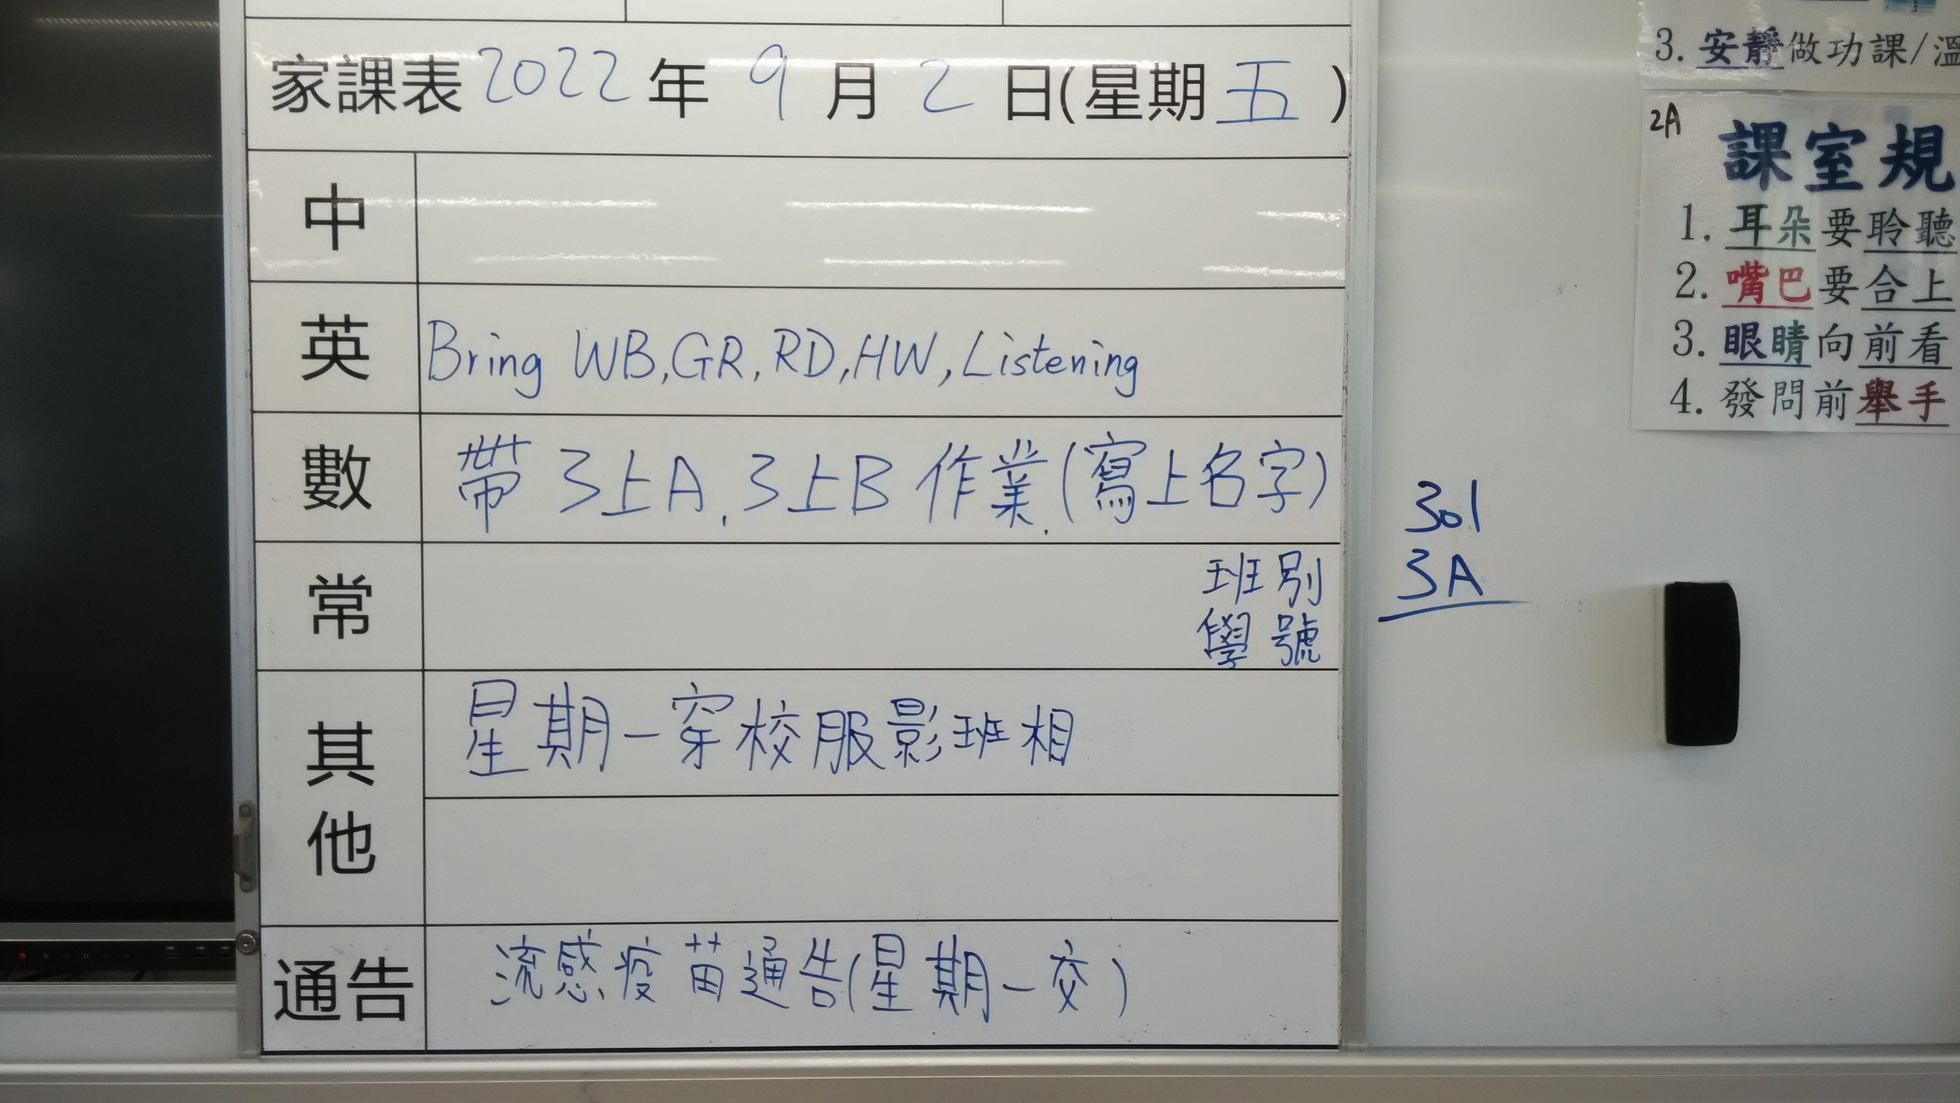 家課表 2022 年 9 月 2 日(星期 五 )
中
英 Bring WB, GR, RD, HW, Listening
數 帶 3上A, 3上B 作業. (寫上名字)
常 班別
學號
其他 星期一穿校服影班相
通告 流感疫苗通告(星期一交)
301
3A
3. 安靜做功課/溫
2A
課室規
1. 耳朵要聆聽
2. 嘴巴要合上
3. 眼睛向前看
4. 發問前舉手